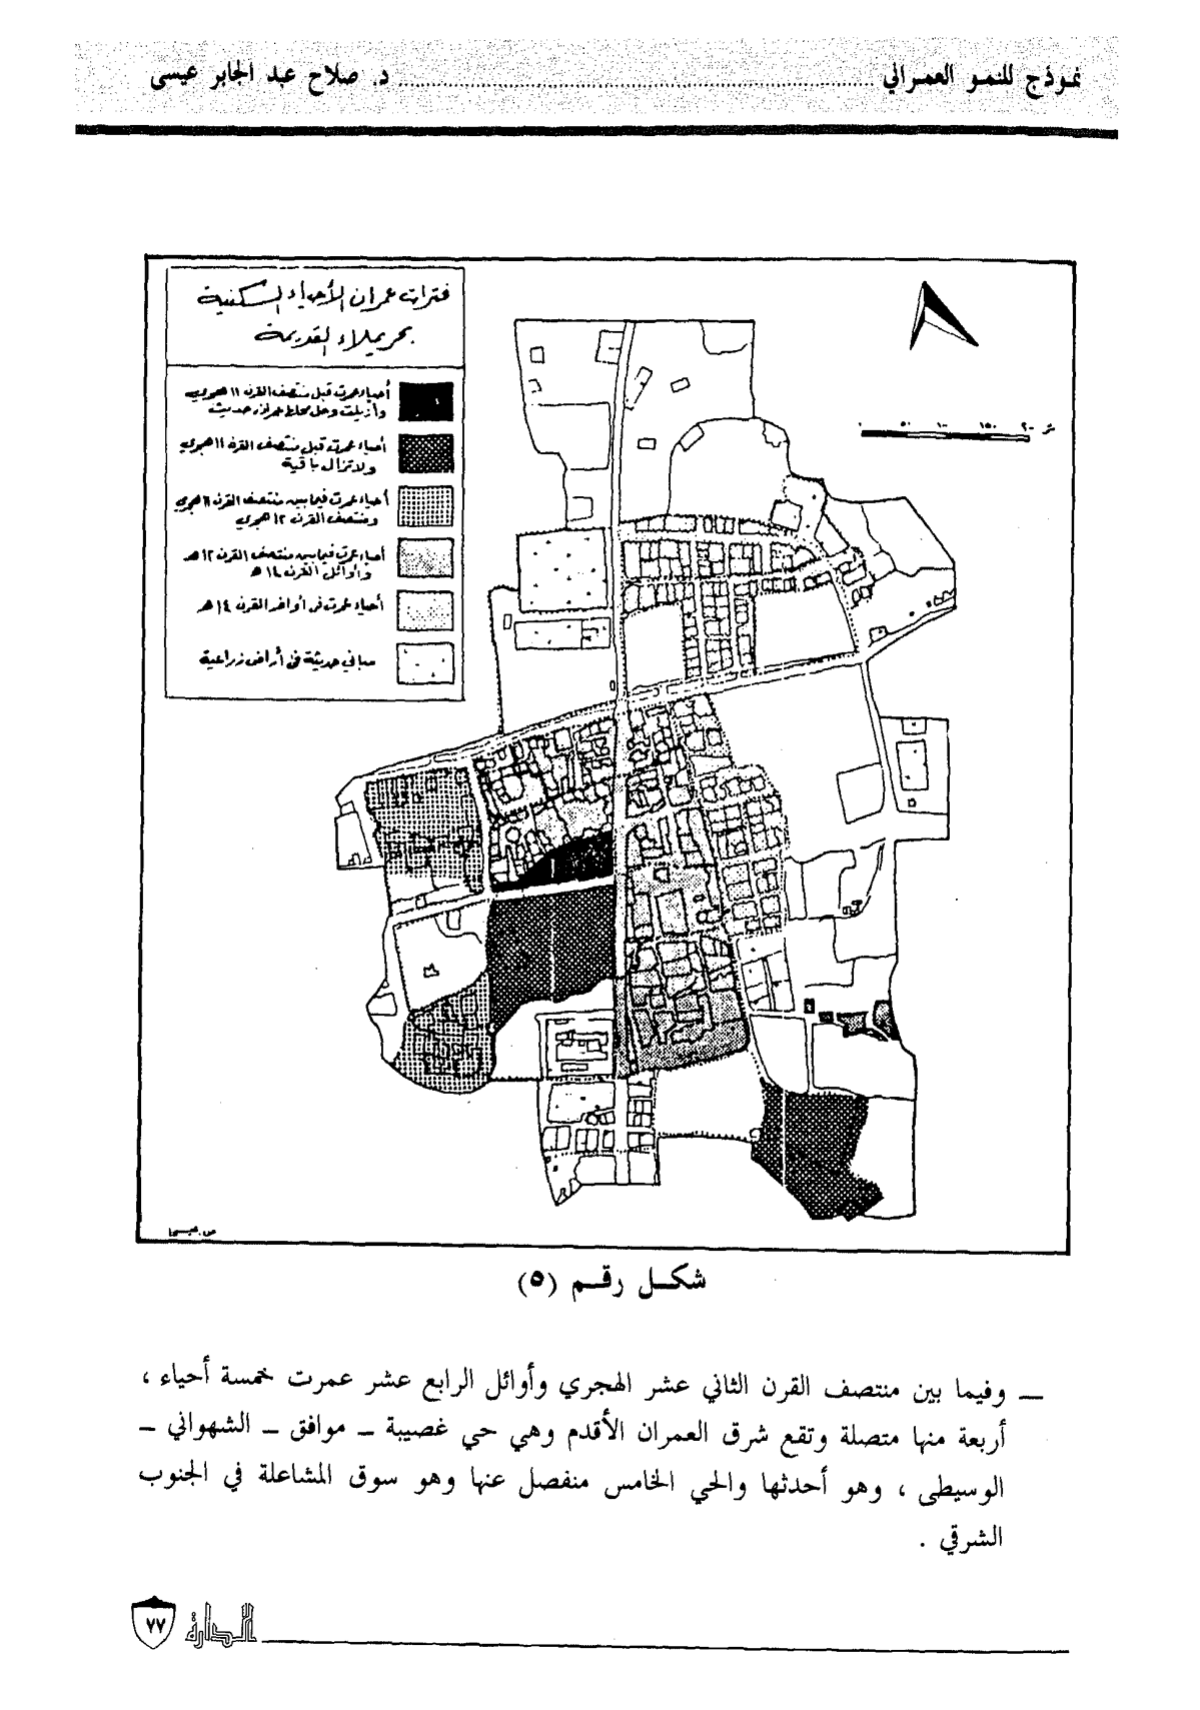 نموذج للنمو العمراني ........................ د. صلاح عبد الجابر عيسى
فترات عمران الأحياء السكنية
بحريملاء القديمة
أحياء عمرت قبل منتصف القرن ١١ هجري
وأزيلت وحل محلها عمران حديث
أحياء عمرت قبل منتصف القرن ١١ هجري
ولا تزال باقية
أحياء عمرت فيما بين منتصف القرن ١١ هجري
ومنتصف القرن ١٢ هجري
أحياء عمرت فيما بين منتصف القرن ١٢ هـ
وأوائل القرن ١٤ هـ
أحياء عمرت في أواخر القرن ١٤ هـ
مباني حديثة في أراض زراعية
٠ ٥٠ ١٠٠ ١٥٠ ٢٠٠ متر
ص. عيسى
شكل رقم (٥)
ــ وفيما بين منتصف القرن الثاني عشر الهجري وأوائل الرابع عشر عمرت خمسة أحياء ،
أربعة منها متصلة وتقع شرق العمران الأقدم وهي حي غصيبة ــ موافق ــ الشهواني ــ
الوسيطى ، وهو أحدثها والحي الخامس منفصل عنها وهو سوق المشاعلة في الجنوب
الشرقي .
الدارة ٧٧